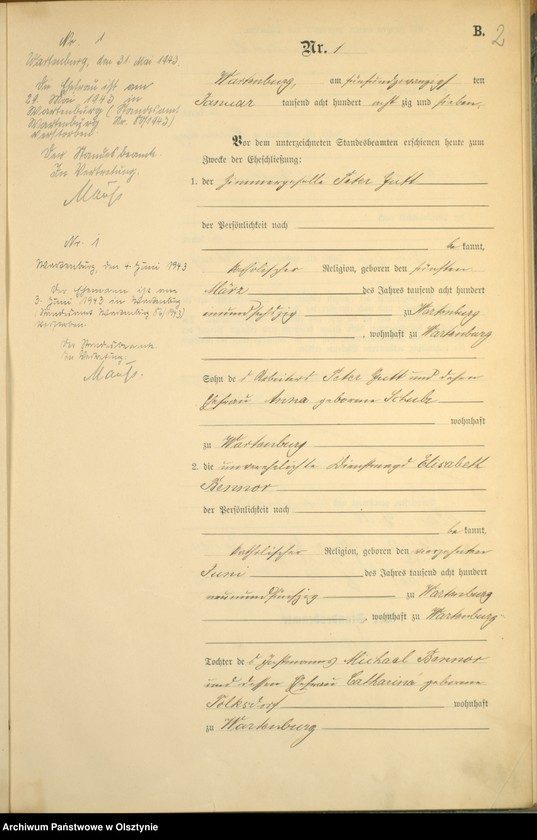 B.
2
Nr. 1
Wartenburg, den 31. Mai 1943
Die Ehefrau ist am
29. Mai 1943 in
Wartenburg (Standesamt
Wartenburg Nr. 1943)
verstorben
Der Standesbeamte
In Vertretung.
Nr. 1
Wartenburg, den 4. Juni 1943
Der Ehemann ist am
3. Juni 1943 in Wartenburg
Standesamt Wartenburg 1943)
verstorben.
Der Standesbeamte
In Vertretung.
Nr. 1
Wartenburg, am fünfundzwanzigsten
Januar tausend acht hundert achtzig und sieben.
Vor dem unterzeichneten Standesbeamten erschienen heute zum
Zwecke der Eheschließung:
1. der Zimmergeselle Peter Gutt
der Persönlichkeit nach
bekannt,
katholischer Religion, geboren den fünften
März des Jahres tausend acht hundert
zu Wartenburg
, wohnhaft zu Wartenburg
Sohn des Arbeiters Peter Gutt und dessen
Ehefrau Anna geborene Schulz
wohnhaft
zu Wartenburg
2. die unverehelichte Dienstmagd Elisabeth
der Persönlichkeit nach
bekannt,
katholischer Religion, geboren den vierzehnten
Juni des Jahres tausend acht hundert
neunundfünfzig zu Wartenburg
, wohnhaft zu Wartenburg
Tochter des Michael
und dessen Ehefrau Catharina geborene
Tolksdorf wohnhaft
zu Wartenburg
Archiwum Państwowe w Olsztynie